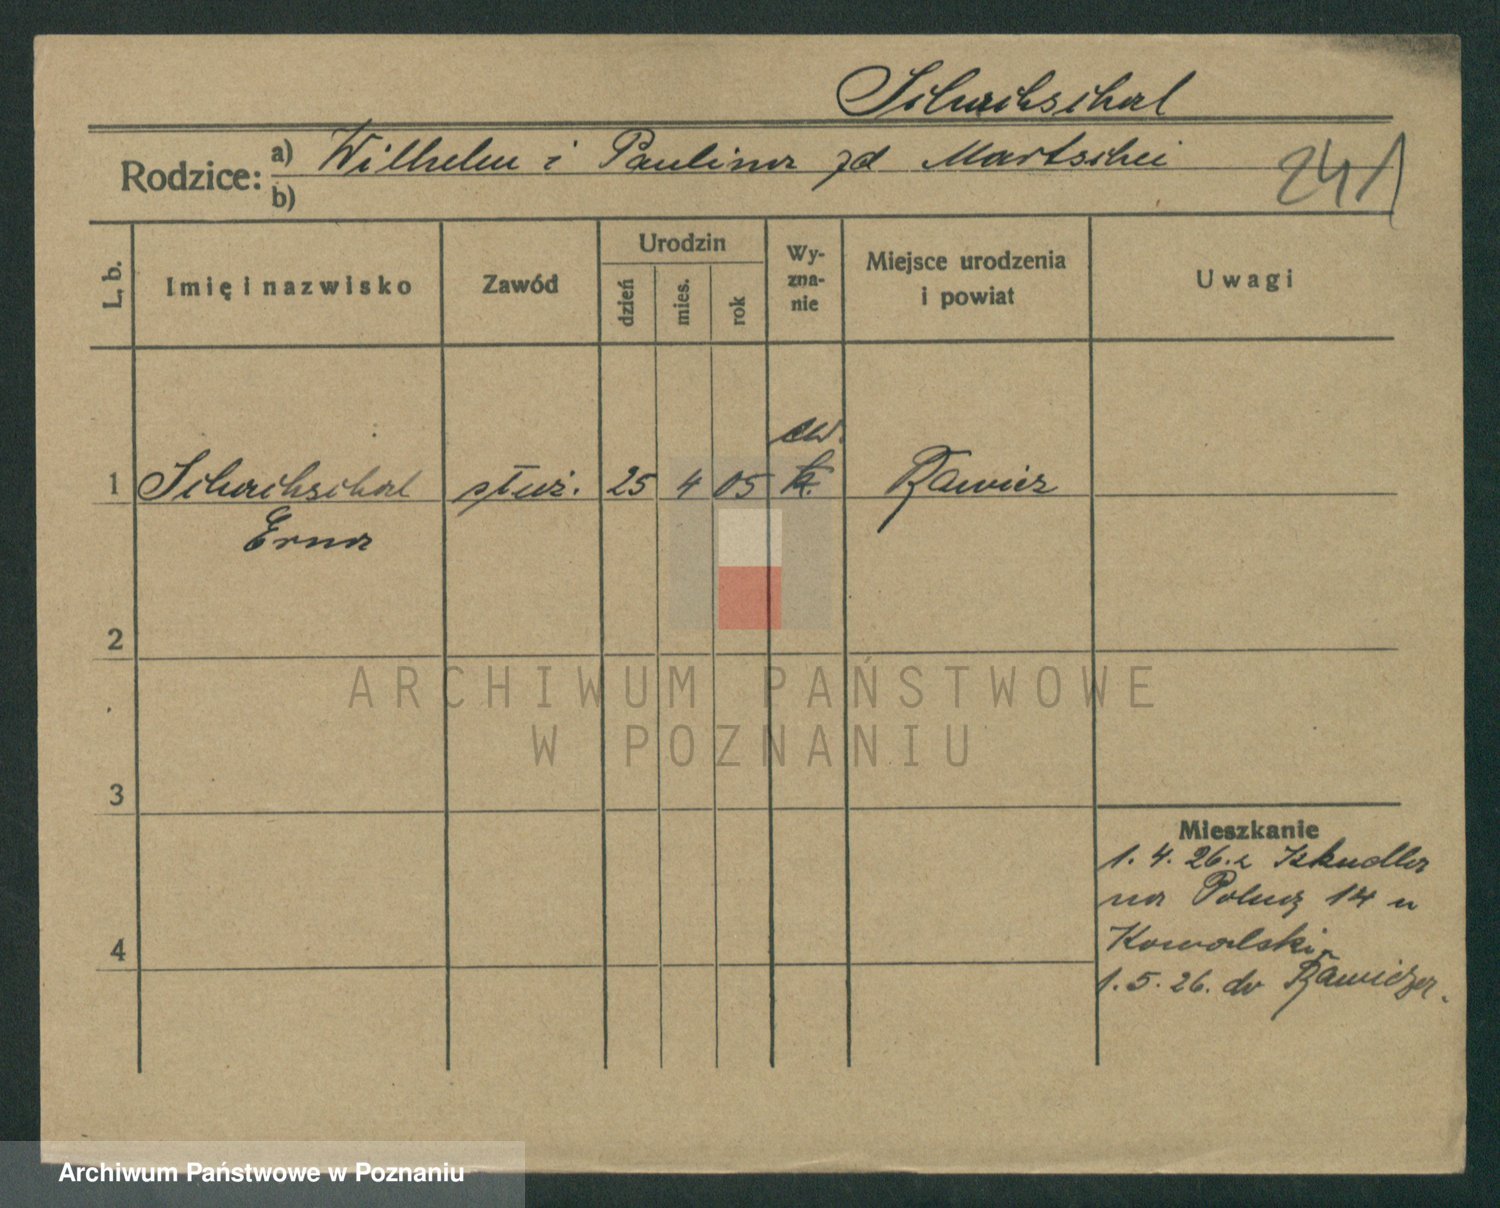 Schachschal
Rodzice:
a) Wilhelm i Paulina zd Martschei
b)
241
L. b.
Imię i nazwisko
Zawód
Urodzin
dzień
mies.
rok
Wy-
zna-
nie
Miejsce urodzenia
i powiat
Uwagi
1 Schachschal służ. 25 4 05 ew. k. Rawicz
Erna
2
3
4
Mieszkanie
1.4.26. z
na 14 u
Kowalski
1.5.26. do Rawicza.
ARCHIWUM PAŃSTWOWE
W POZNANIU
Archiwum Państwowe w Poznaniu